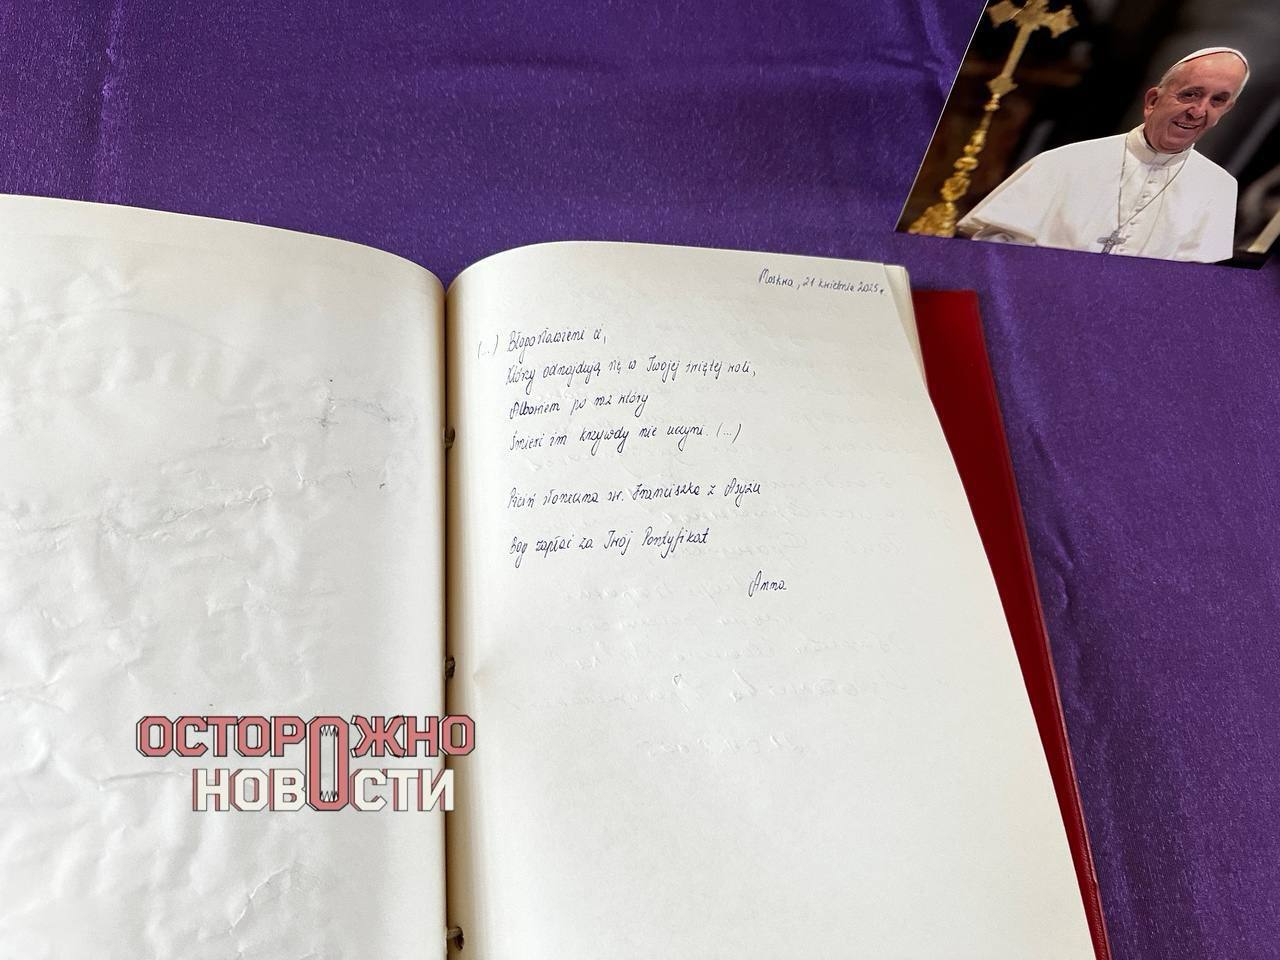 Moskwa, 21 kwietnia 2025 r.
(...) Błogosławieni ci,
Którzy odnajdują się w Twojej świętej woli,
Albowiem po raz wtóry
Śmierć im krzywdy nie uczyni. (...)
Pieśń słoneczna św. Franciszka z Asyżu
Bóg zapłać za Twój Pontyfikat
Anna
ОСТОРОЖНО
НОВОСТИ